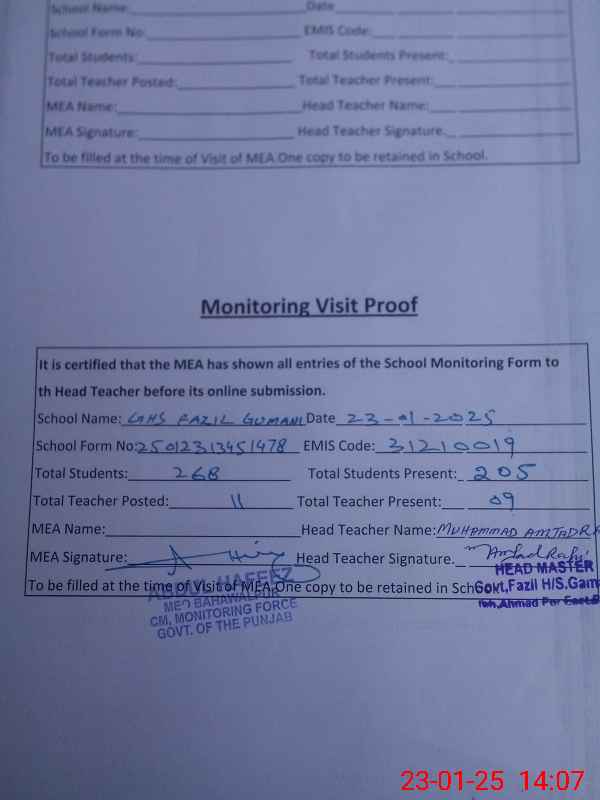 School Name: Date
School Form No: EMIS Code:
Total Students: Total Students Present:
Total Teacher Posted: Total Teacher Present:
MEA Name: Head Teacher Name:
MEA Signature: Head Teacher Signature.
To be filled at the time of Visit of MEA One copy to be retained in School.
Monitoring Visit Proof
It is certified that the MEA has shown all entries of the School Monitoring Form to
th Head Teacher before its online submission.
School Name: GHS FAZIL GUMANI Date 23-01-2025
School Form No: 25012313451478 EMIS Code: 31210019
Total Students: 268 Total Students Present: 205
Total Teacher Posted: 11 Total Teacher Present: 09
MEA Name: Head Teacher Name: MUHAMMAD AMJAD
MEA Signature: Head Teacher Signature. Amjad Rafi
HEAD MASTER
To be filled at the time of Visit of MEA One copy to be retained in School.
Govt, Fazil H/S.Gam
Teh,Ahmad Pur East
HAFEEZ
MEO BAHAWALPUR
CM, MONITORING FORCE
GOVT. OF THE PUNJAB
23-01-25 14:07